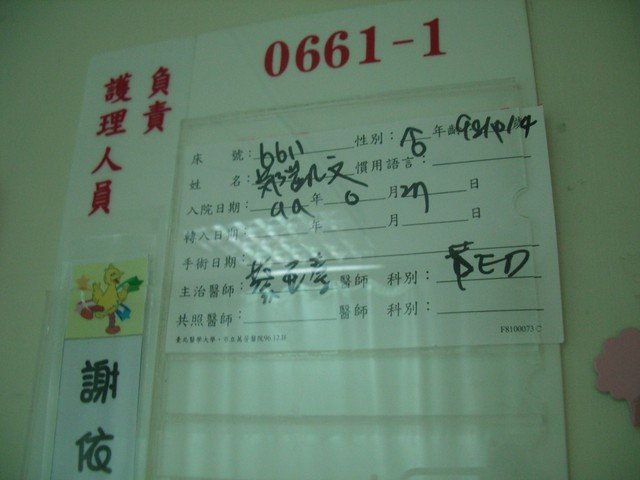 0661-1
負責
護理人員
床 號：6611 性別： 年齡 歲
姓 名：鄭 文 慣用語言：
入院日期： 年 月 27 日
轉入日期： 年 月 日
手術日期：
主治醫師：蔡 醫師 科別：PED
共照醫師： 醫師 科別：
臺北醫學大學‧市立萬芳醫院96.12.H
F8100073 C
謝依